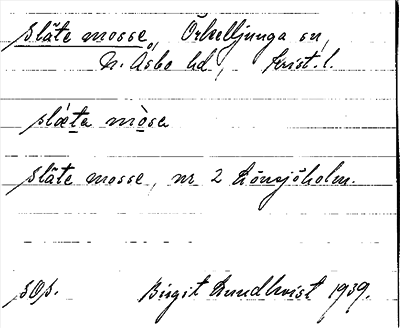 släte mosse, Örkelljunga sn,
N. Åsbo hd, Krist. l.
slǽta mòsa
släte mosse, nr 2 Lönsjöholm.
sOs. Birgit Lundkvist 1939.